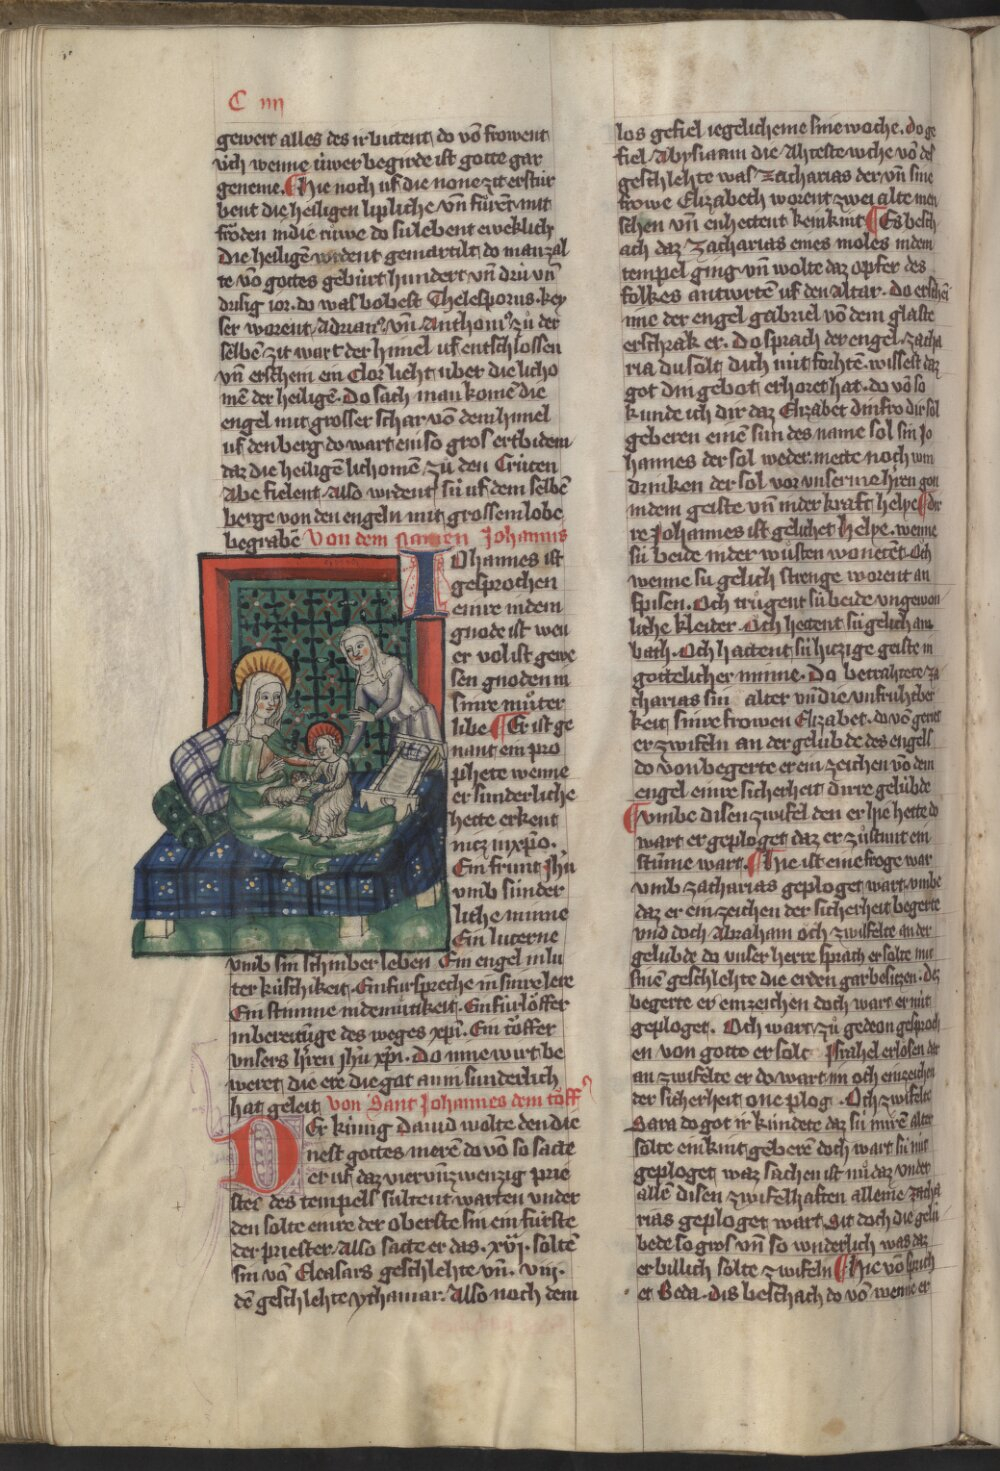 C iiii
gewert alles des ir bittent do võ frowent
vͥch wenne v́wer begirde ist gotte gar
geneme. Hie noch uf die none zit erstur
bent die heiligen lipliche vñ fůrent mit
frôden in die růwe do sú lebent eweklich
Die heiligẽ wrdent gemartilt do man zal
te võ gottes gebúrt hundert vñ drú vñ
drisig ior. do was bobest Thelesporus. key
ser worent Adrian⁹ vñ Anthoni⁹ zů der
selbẽ zit wart der himel uf entschlossen
vñ erschein ein Clor licht úber die licho
mẽ der heiligẽ. Do sach man komẽ die
engel mit grosser schar võ dem himel
uf den berg do wart ein so gros ertbidem
daz die heiligẽ lichomẽ zů den Crúcen
Abe fielent Also wrdent sú uf dem selbẽ
berge von den engeln mit grossem lobe
begrabẽ Von dem namen Johannis
Johannes ist
gesprochen
einre indem
gnode ist wen
er vol ist gewe
sen gnoden in
sinre můter
libe Er ist ge
nant ein pro
phete wenne
er sunderliche
hette erkent
nicz in xp̃o.
Ein frunt ihũ
vmb sunder
liche minne
Ein lucerne
vmb sin schinber leben Ein engel in lu
ter kúschikeit. Ein fúrspreche in sinre lere
Ein stimme in demútikeit. Ein fúrlôffer
in bereitunge des weges xpi. Ein tôffer
vnsers h̃ren ihũ xpi. Do mine wirt be
weret die ere die got an in sunderlich
hat geleit von Sant Johannes dem tôff
Der kúnig dauid wolte den die
nest gottes merẽ do võ so sacte
er uf daz vier vñ zwenzig prie
ster des tempels sultent warten vnder
den solte einre der oberste sin ein fúrste
der priester. Also sacte er das. xvj. soltẽ
sin võ Eleasars geschlehte vñ. viij.
dẽ geschlehte ythamar. Also noch dem
los gefiel iegelicheme sine woche. do ge
fiel Abysiam die Ahteste wche võ des
geschlehte was Zacharias der vñ sine
frowe Elizabeth worent zwei alte men
schen vñ enhettent kein kint Es besch
ach daz Zacharias eines moles in dem
tempel ging vñ wolte daz opfer des
folkes antwrtẽ uf den Altar. Do erschei
ime der engel gabriel võ dem glaste
erschrak er. Do sprach der engel zacha
ria du solt dich nit forhtẽ. wissest daz
got din gebot erhoret hat. do võ so
kunde ich dir daz Elizabet din fro dir sol
geberen einẽ sun des name sol sin Jo
hannes der sol weder mette noch win
drinken der sol vor vnserme h̃ren gon
indem geiste vñ in der kraft helye dir
re Johannes ist gelichet helye. wenne
sú beide in der wústen wonetẽt. Och
wenne sú gelich strenge worent an
spisen. Och trůgent sú beide vngewon
liche kleider. Och hettent sú gelich am
bath. Och hattent sú hiczige geiste in
gottelicher minne. Do betrahtete za
charias sin alter vñ die vnfruhtber
keit sinre frowen Elizabet. do võ geriet
er zwifeln an der gelúbde des engels
do von begerte er ein zeichen võ dem
engel einre sicherheit dirre gelúbde
vmbe disen zwifel den er hie hette do
wart er geploget daz er zůstunt ein
stum̃e wart. Hie ist eine froge war
vmb zacharias geploget wart. vmbe
daz er ein zeichen der sicherheit begerte
vnd doch Abraham och zwifelte an der
gelubde do vnser herre sprach er solte mit
sinẽ geschlehte die erden gar besitzen. Des
begerte er ein zeichen doch wart er nút
geploget. Och wart zů gedeon gesproch
en von gotte er solt Jsrahel erlosen dar
an zwifelte er do wart im och ein zeichen
der sicherheit one plog. Och zwifelte
Sara do got ir kúndete daz sú in irẽ alter
solte ein kint geberẽ doch wart sú nút
geploget waz sachen ist nů daz vnder
allẽ disen zwifelhaften alleine zacha
rias geploget wart. Sit doch die gelú
bede so gros vñ so wnderlich was daz
er billich solte zwifeln Hie võ sprich
et Beda. dis beschach do võ wenne er